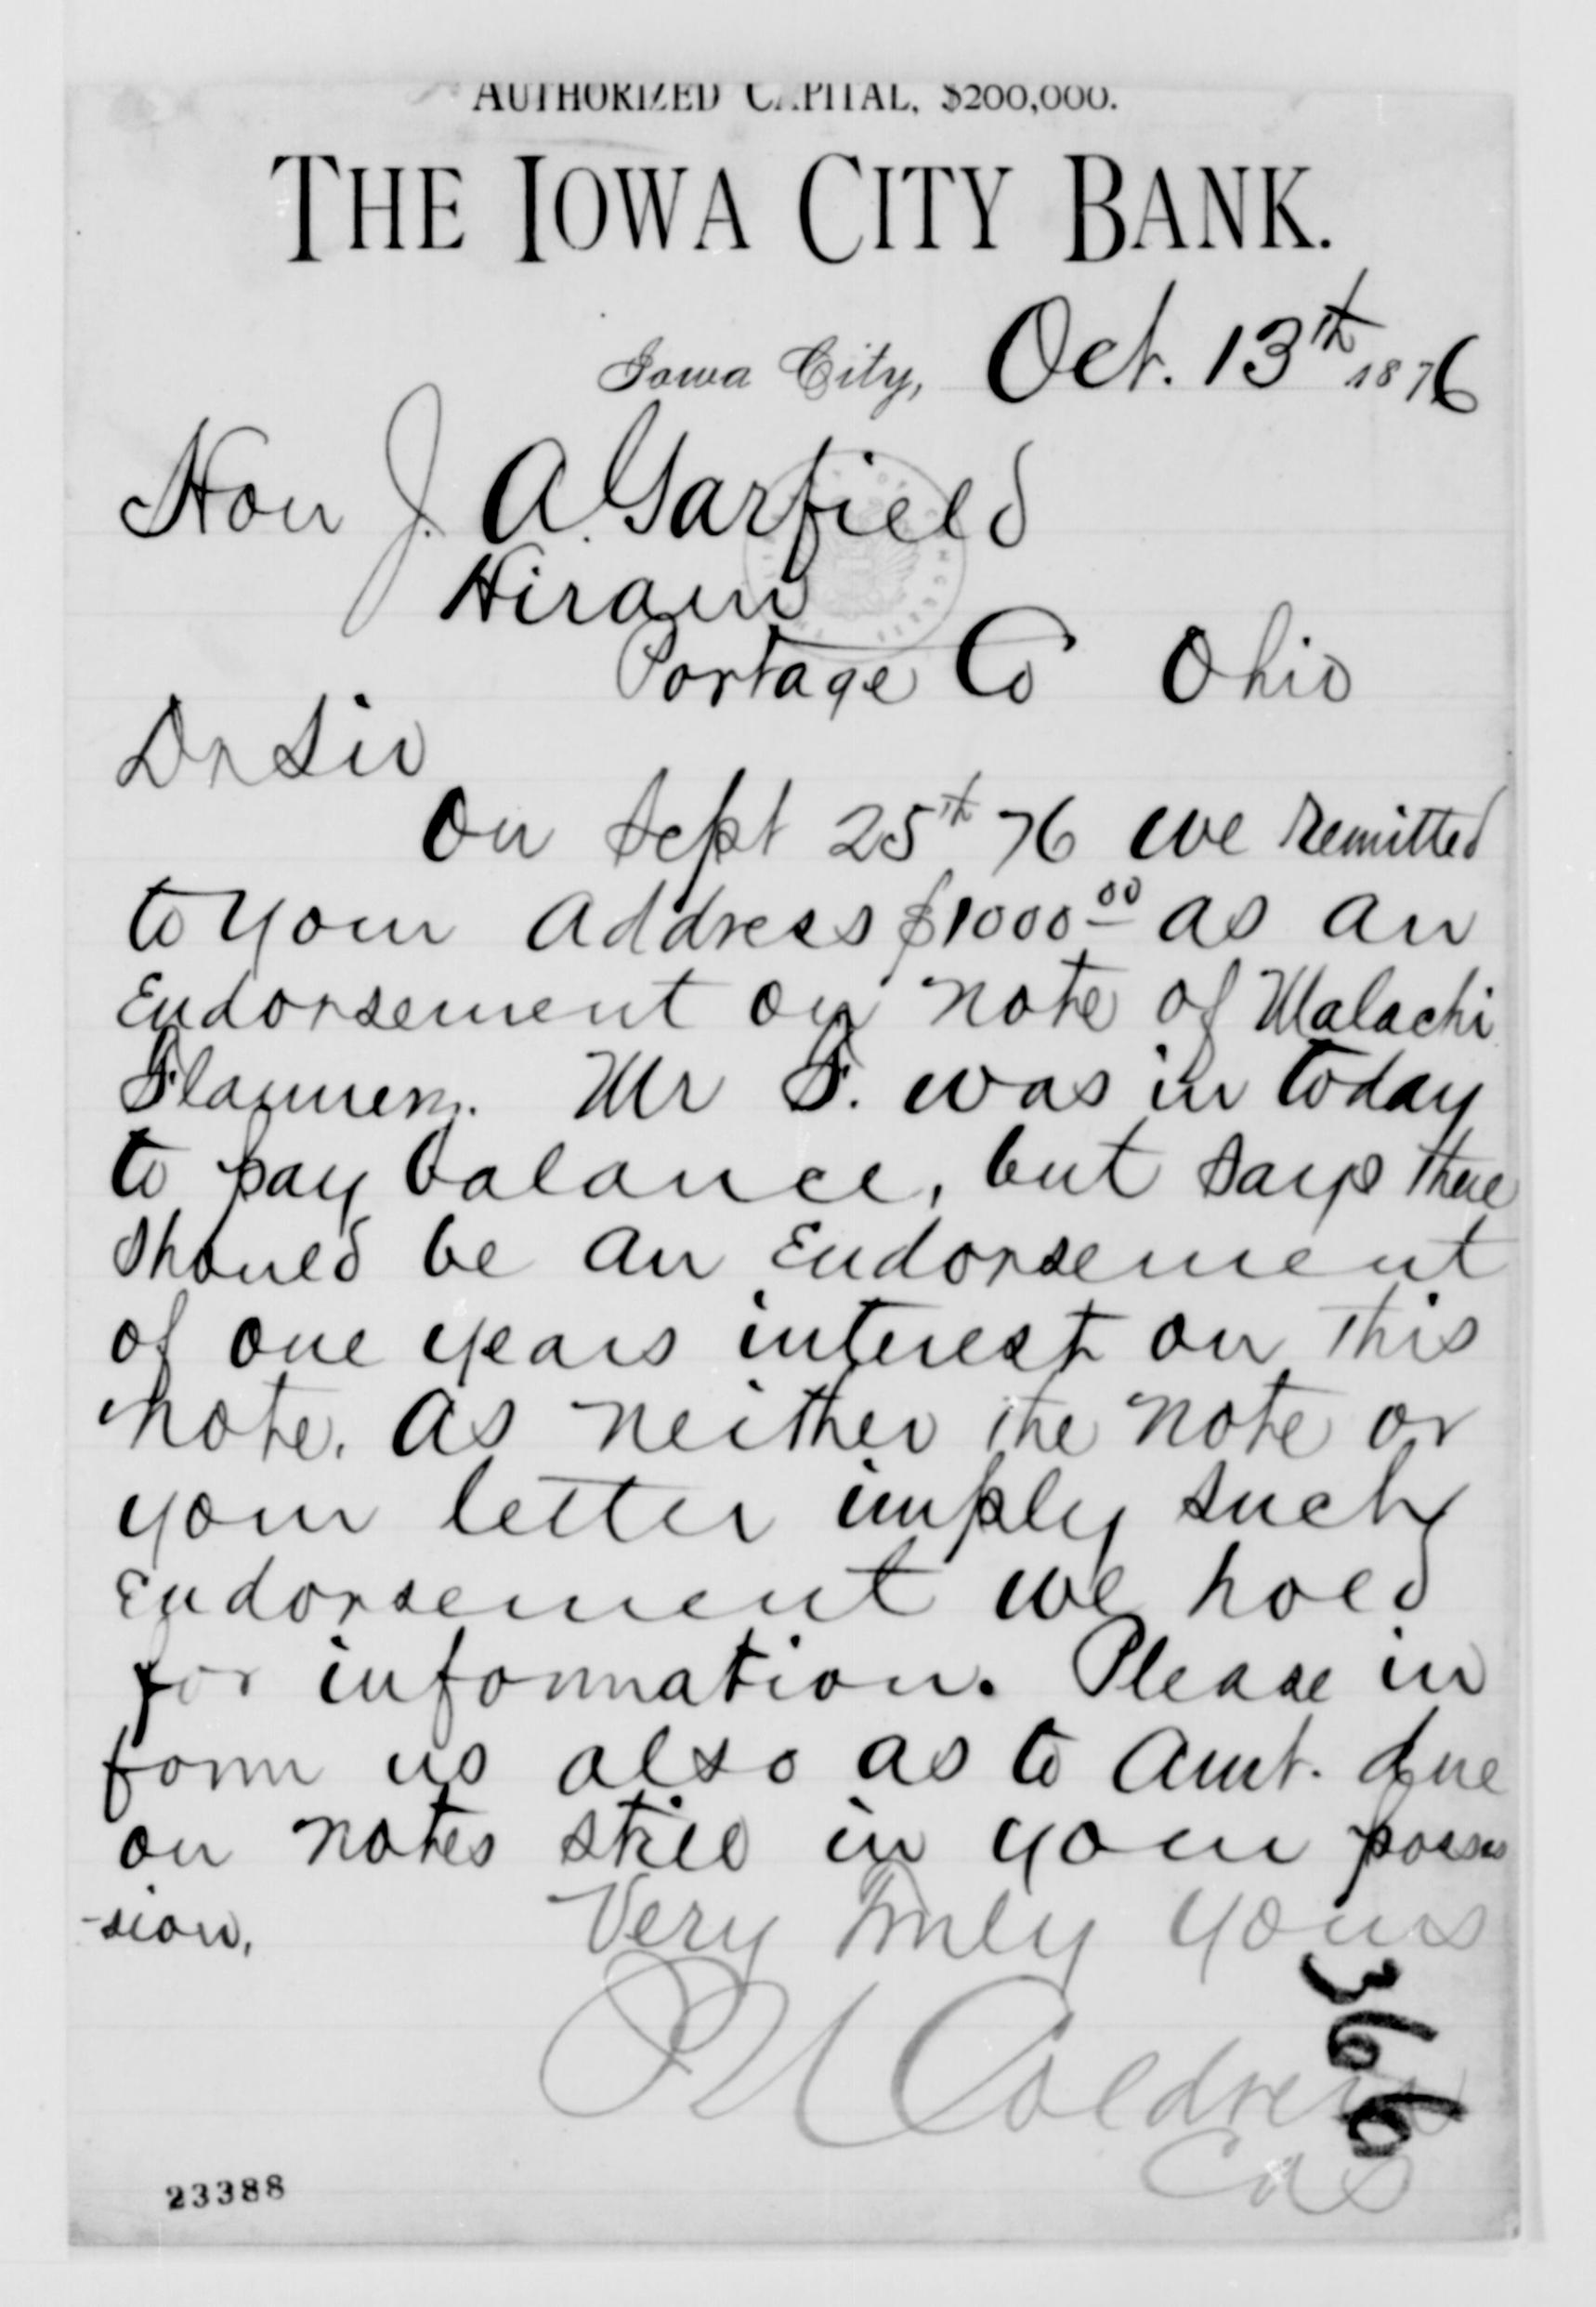 AUTHORIZED CAPITAL, $200,000.
THE IOWA CITY BANK.
Iowa City, Oct. 13th 1876
Hon J. A. Garfield
Hiram
Portage Co Ohio
Dr Sir
On Sept 25th 76 we remitted
to your address $1000.00 as an
Endorsement on note of Malachi
Mr F. was in today
to pay balance, but says there
should be an Endorsement
of one years interest on this
note. As neither the note or
your letter imply such
Endorsement we hold
for information. Please in
form us also as to Amt. due
on notes still in your posses
-sion.
Very truly yours
Coldren
Cas
366
23388